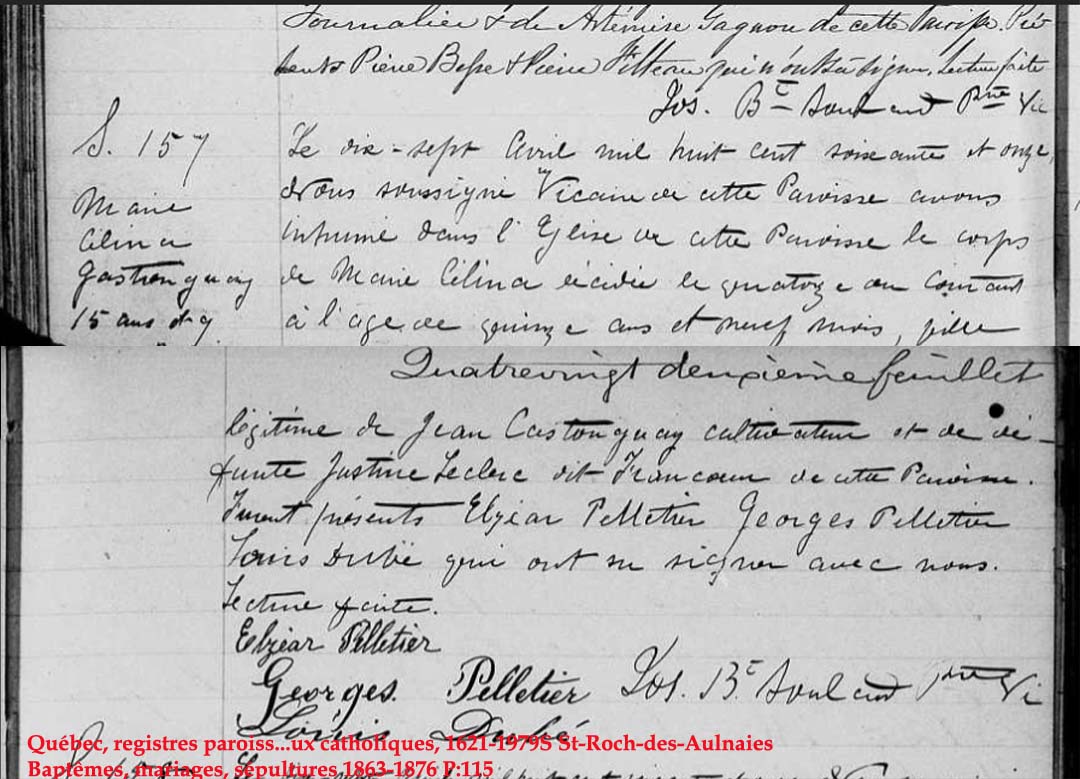 Journalier & de Artémise Gagnon de cette Paroisse. Pré-
sents Pierre Besse & Pierre Pelletier qui n'ont su signer. Lecture faite
Jos. Bte Soulard Ptre Vic
S. 157
Le dix-sept Avril mil huit cent soixante et onze,
Nous soussigné Vicaire de cette Paroisse avons
Marie
inhumé dans l'Eglise de cette Paroisse le corps
Celina
de Marie Célina décédée le quatorze du courant
Gastonguay
à l'age de quinze ans et neuf mois, fille
15 ans et 9
Quatrevingt deuxième feuillet
légitime de Jean Castonguay cultivateur et de dé-
funte Justine Leclerc dit Francoeur de cette Paroisse.
Furent présents Elzéar Pelletier Georges Pelletier
Louis Dubé qui ont su signer avec nous.
Lecture faite.
Elzéar Pelletier
Georges Pelletier Jos. Bte Soulard Ptre Vi
Louis Dubé
Québec, registres paroiss...ux catholiques, 1621-1979S St-Roch-des-Aulnaies
Baptêmes, mariages, sépultures 1863-1876 P:115